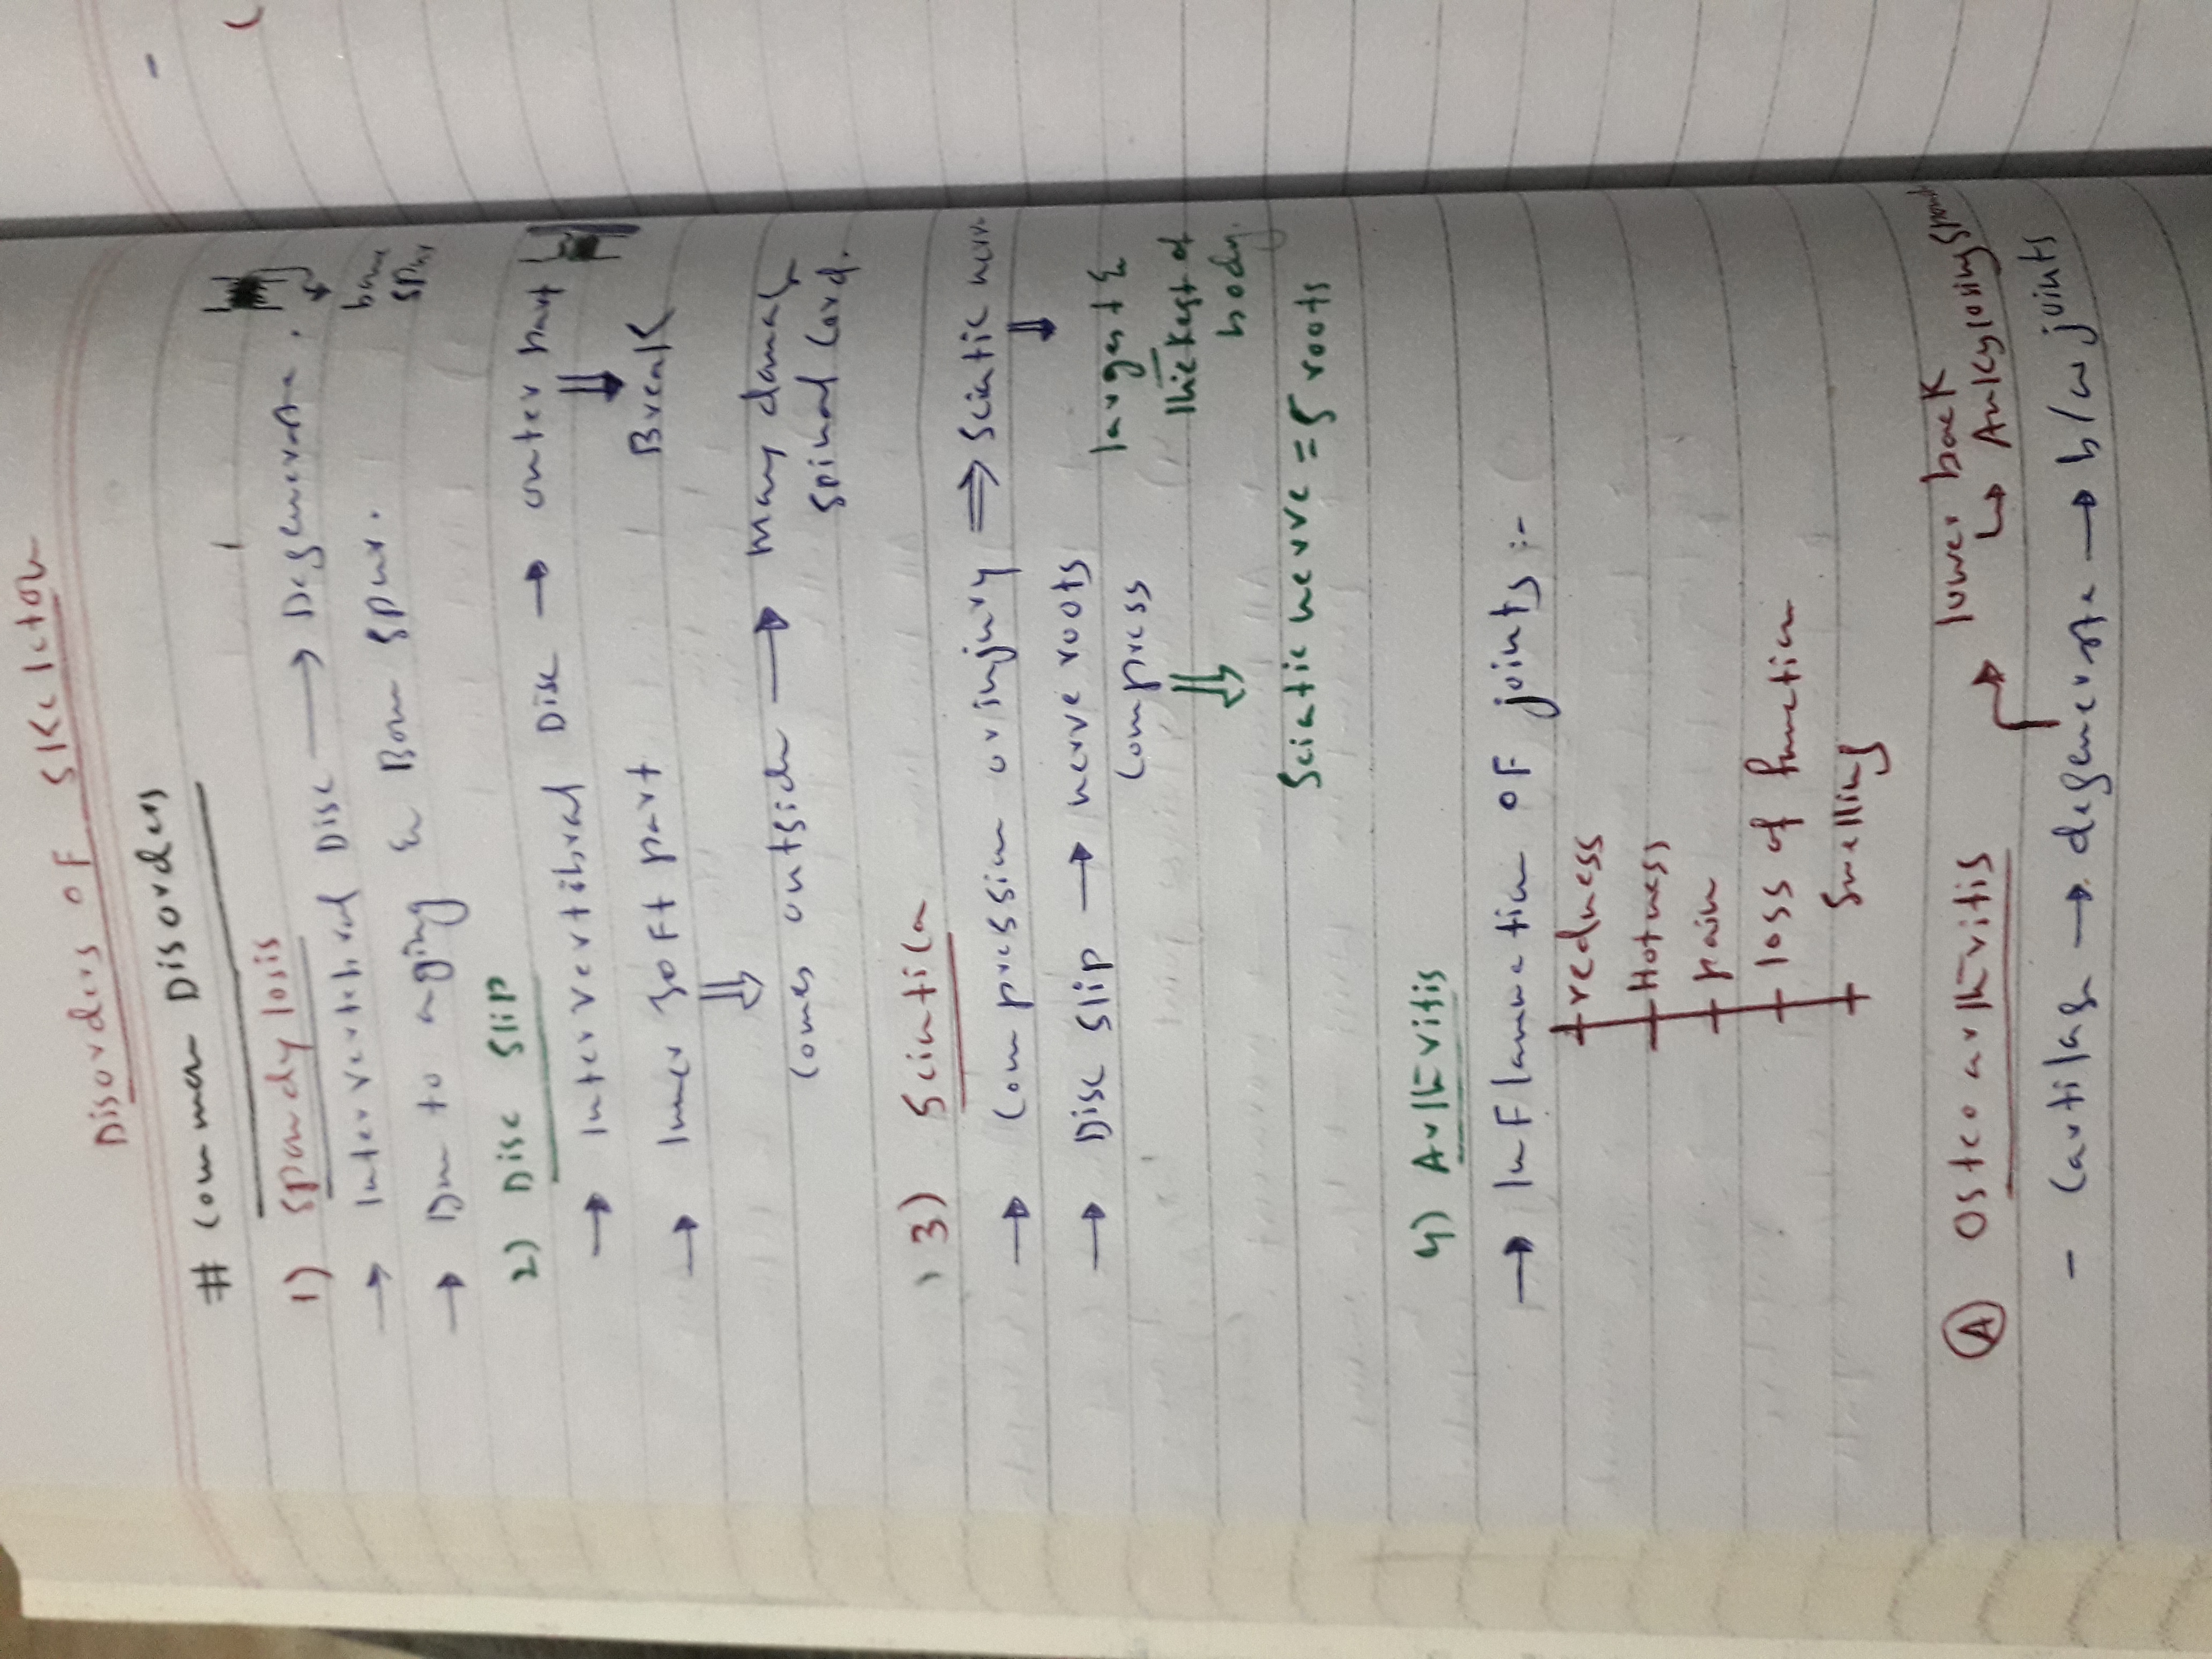 Disorders of Skeleton
# Common Disorders
1) Spondylosis
→ Intervertebral Disc → Degenerate.
bone spur
→ Due to aging & Bone spur.
2) Disc Slip
→ Intervertibral Disc → outer part
⇓
Break
→ Inner soft part
⇓
Comes outside → Many damage
spinal Cord.
3) Scintica
→ Compression or injury ⇒ Sciatic nerve
⇓
→ Disc slip → nerve roots
largest &
Compress
thickest of
⇓
body.
Sciatic nerve = 5 roots
4) Arthritis
→ InFlammation OF joints :-
redness
Hotness
pain
loss of function
Swelling
lower back
Ⓐ Osteo arthritis ↳ Ankylosing
- Cartilage → degenerate → b/w joints